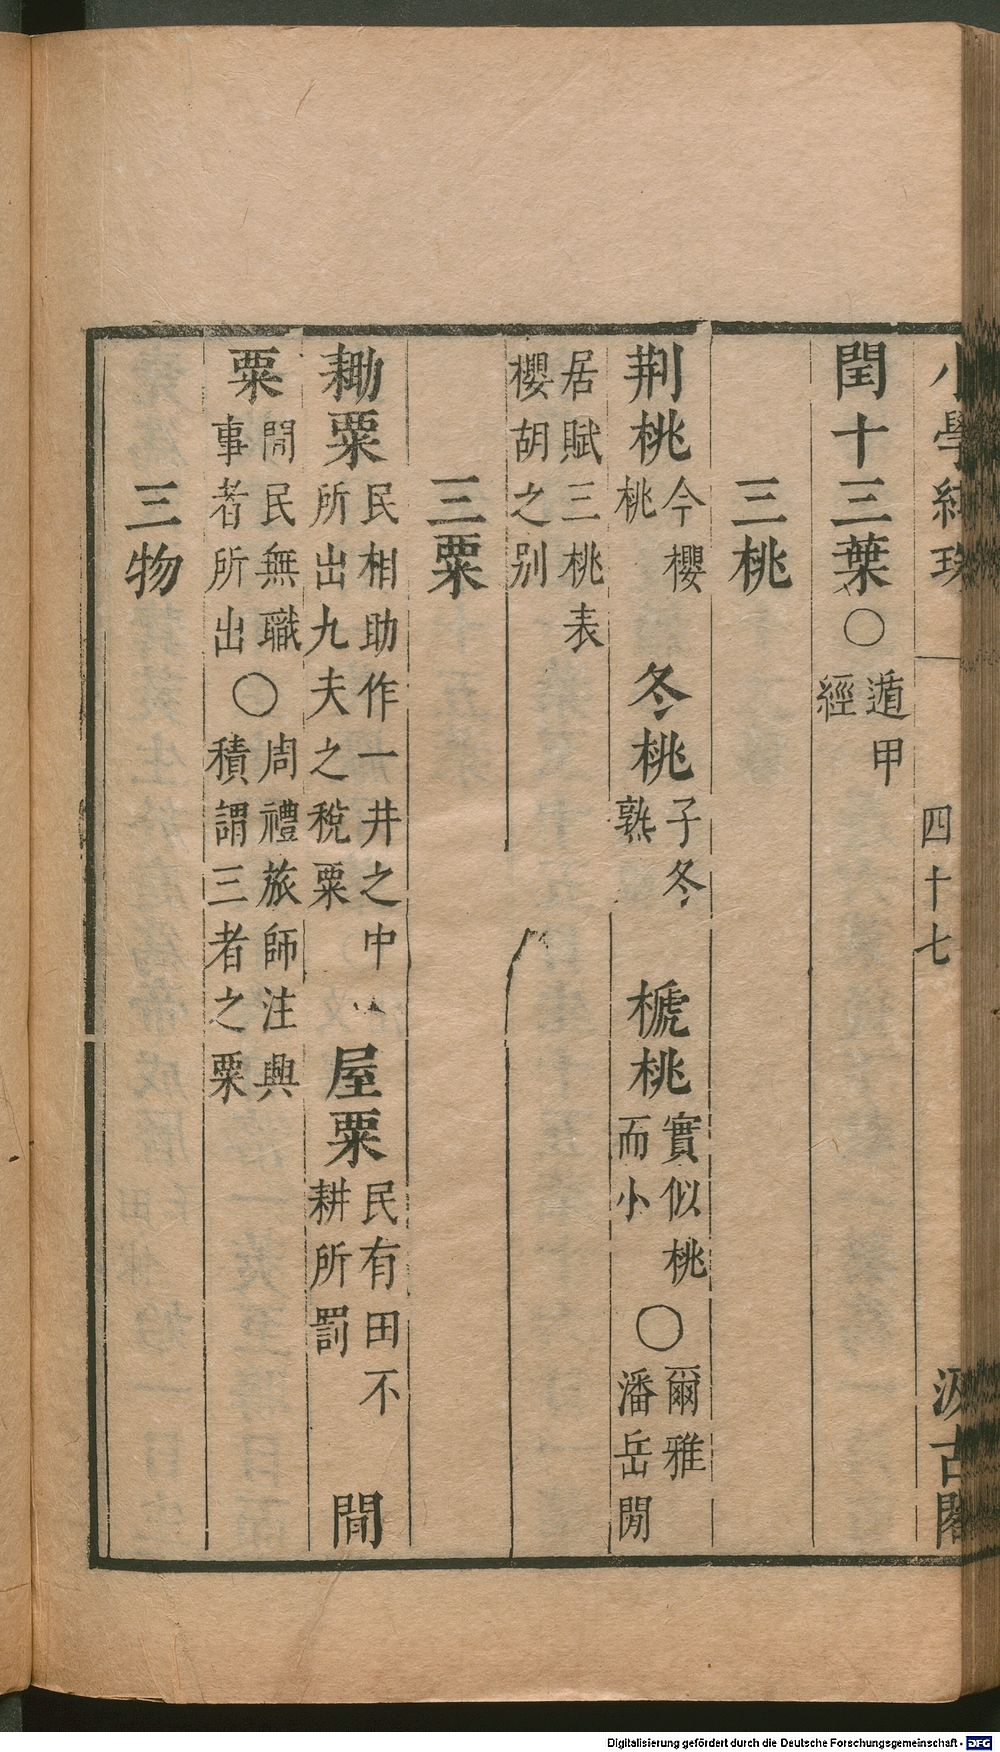 小學紺珠 四十七 汲古閣
閏十三葉○遁甲經
三桃
荆桃今櫻桃 冬桃子冬熟 榹桃實似桃而小○爾雅潘岳閒
居賦三桃表櫻胡之别
三粟
耡粟民相助作一井之中所出九夫之稅粟 屋粟民有田不耕所罰 閒
粟閒民無職事者所出○周禮旅師注興積謂三者之粟
三物
Digitalisierung gefördert durch die Deutsche Forschungsgemeinschaft - DFG